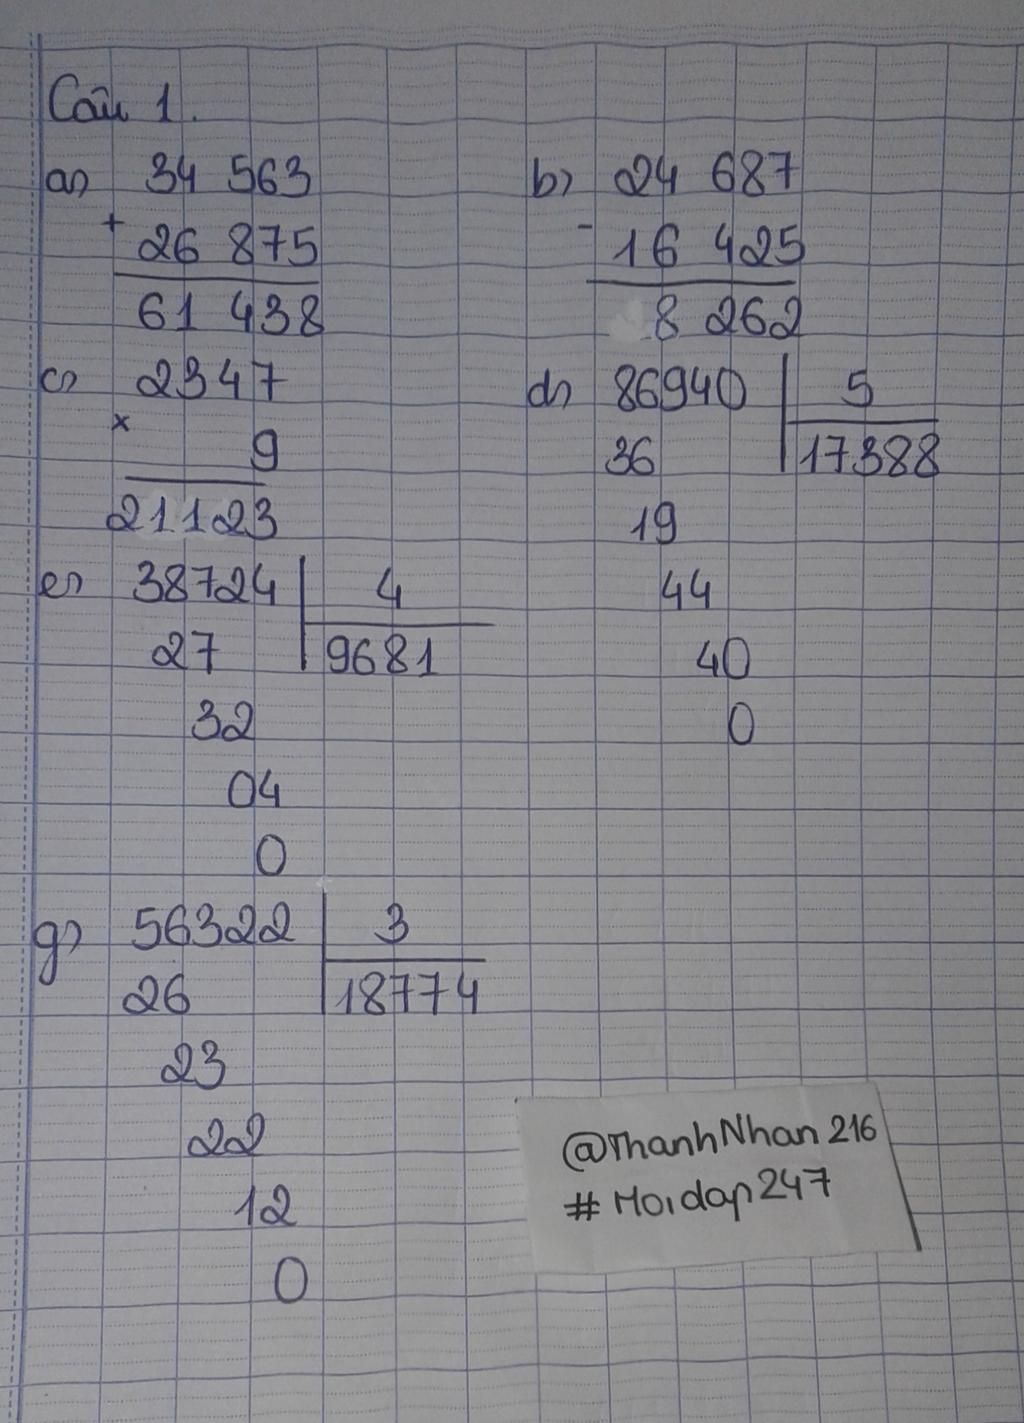 Câu 1.
a) 34 563
+
26 875
61 438
b) 24 687
-
16 425
8 262
c) 2347
x
9
21123
d) 86940 5
36 17388
19
44
40
0
e) 38724 4
27 9681
32
04
0
g) 56322 3
26 18774
23
22
12
0
@ThanhNhan216
# Hoidap247